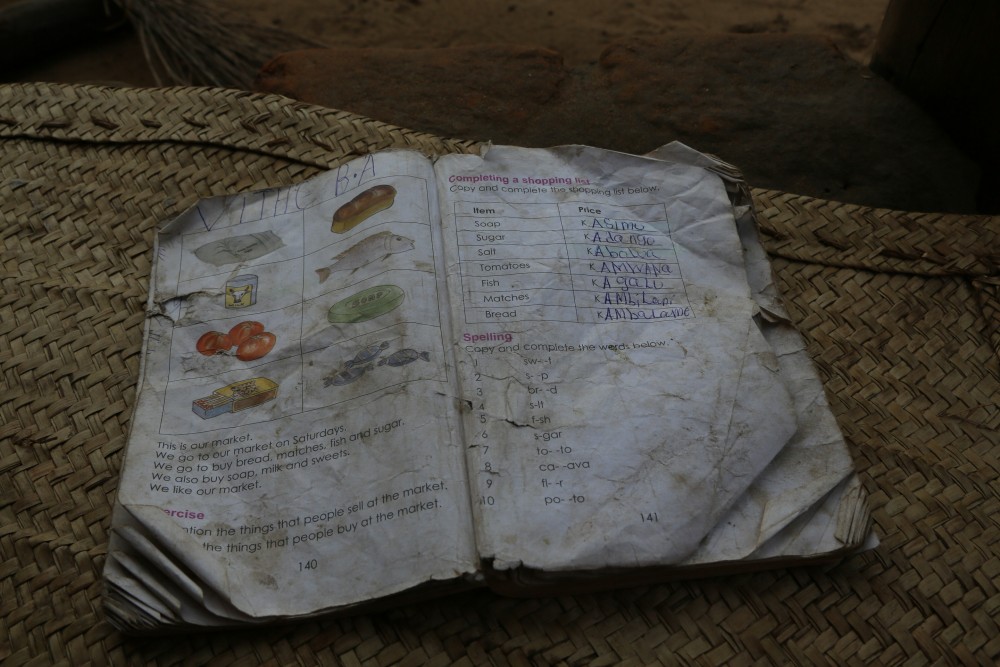 B.A
This is our market.
We go to our market on Saturdays.
We go to buy bread, matches, fish and sugar.
We also buy soap, milk and sweets.
We like our market.
ercise
ntion the things that people sell at the market.
the things that people buy at the market.
140
Completing a shopping list
Copy and complete the shopping list below.
Item Price
Soap K Asimu
Sugar K Adango
Salt K
Tomatoes K AMWANA
Fish K Agalu
Matches K AMbilapi
Bread K AMbalame
Spelling
Copy and complete the words below.
1 sw--t
2 s--p
3 br--d
4 s-lt
5 f-sh
6 s-gar
7 to--to
8 ca--ava
9 fl--r
10 po--to
141